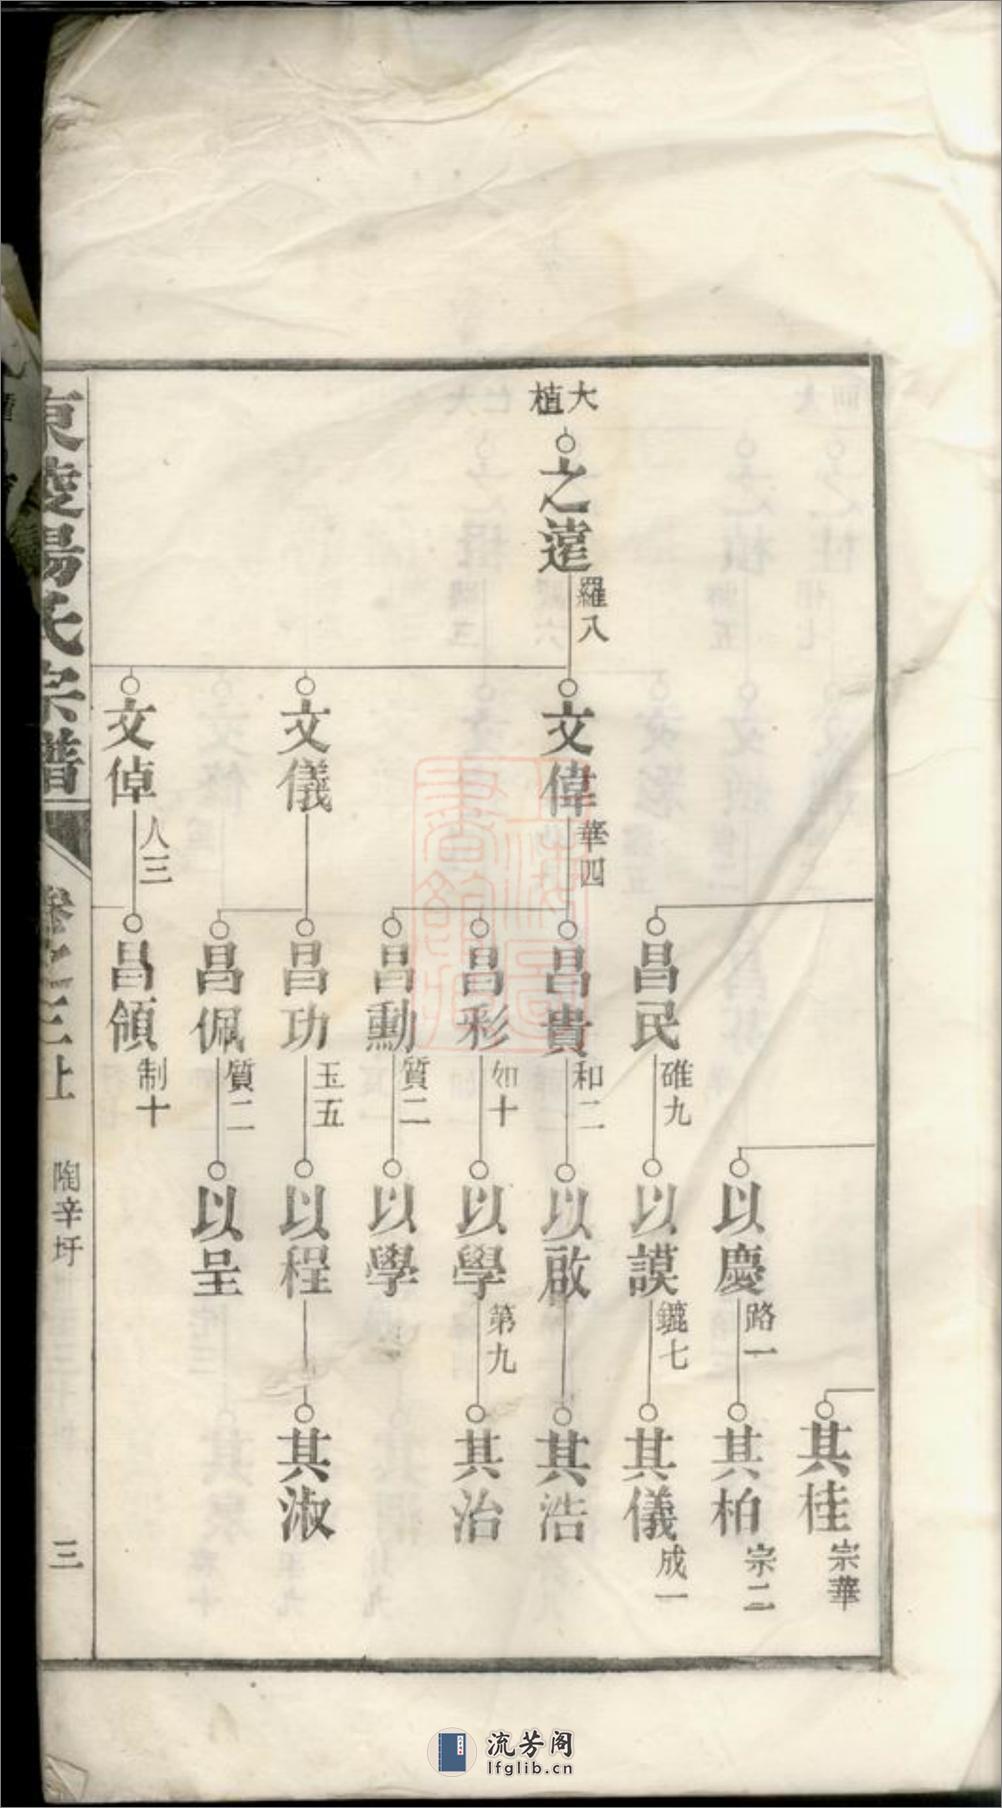 大植
之遠
羅八
文偉
華四
文儀
文倬
人三
昌民
碓九
昌貴
和二
昌彩
如十
昌勳
質二
昌功
玉五
昌佩
質二
昌領
制十
以慶
路一
以謨
鑣七
以啟
以學
第九
以學
以程
以呈
其桂
宗華
其柏
宗二
其儀
成一
其浩
其治
其淑
東陵楊氏宗譜
卷之三上
陶辛圩
三
流芳阁
lfglib.cn